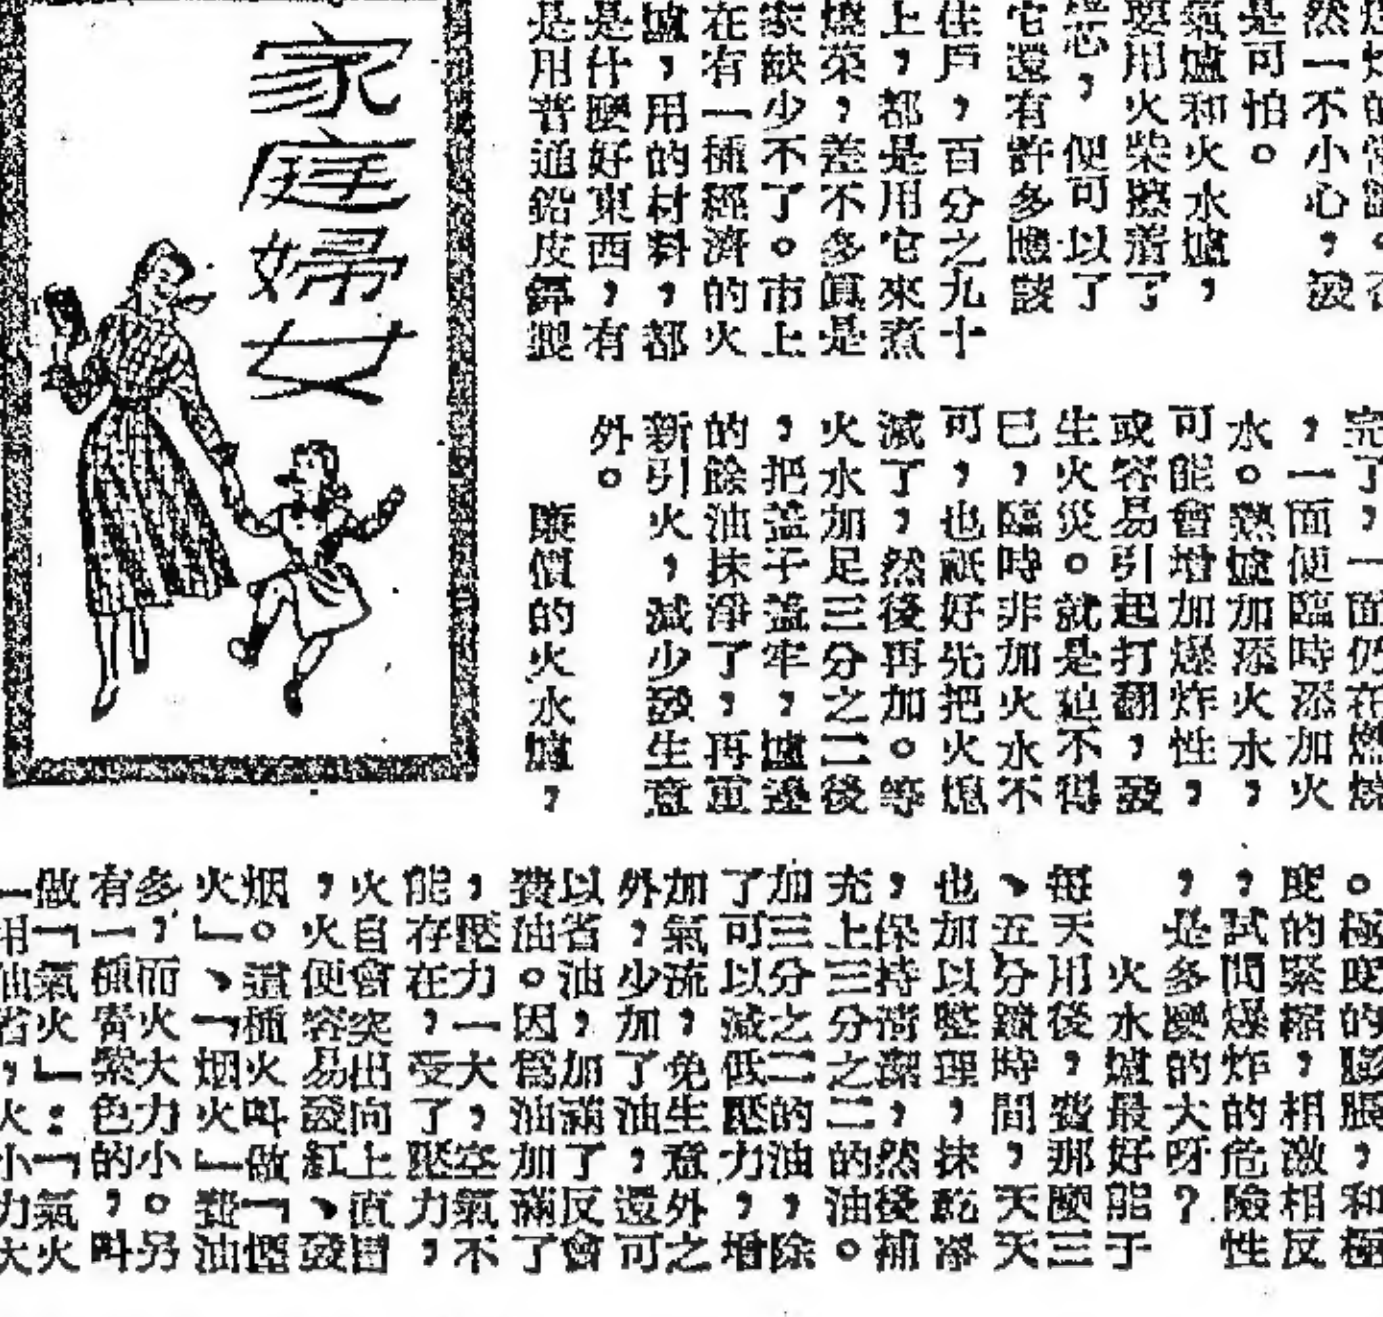 家庭婦女
然一不小心，发
是可怕。
氣爐和火水爐，
要用火柴擦着了
芯，便可以了
它還有許多應該
住戶，百分之九十
上，都是用它來煮
燒菜，差不多眞是
家缺少不了。市上
在有一種經濟的火
爐，用的材料，都
是什麼好東西，有
是用普通鉛皮
完了，一面仍在燃燒
，一面便臨時添加火
水。熱爐加添火水，
可能會增加爆炸性，
或容易引起打翻，發
生火災。就是迫不得
已，臨時非加火水不
可，也祇好先把火熄
滅了，然後再加。等
火水加足三分之二後
，把蓋子蓋牢，爐邊
的餘油抹淨了，再重
新引火，減少發生意
外。
廉價的火水爐，
。極度的膨脹，和極
度的緊縮，相激相反
，試問爆炸的危險性
，是多麼的大呀？
火水爐最好能于
每天用後，費那麼三
、五分鐘時間，天天
也加以整理，抹乾淨
，保持清潔，然後補
充上三分之二的油。
加三分之二的油，除
了可以減低壓力，增
加氣流，免生意外之
外，少加了油，還可
以省油，加滿了反會
費油。因爲油加滿了
，壓力一大，空氣不
能存在，受了壓力，
火自會突出向上直冒
，火便容易發紅、發
烟。這種火叫做「煙
火」、「烟火」費油
多，而火大力小。另
有一種青紫色的，叫
做「氣火」：「氣火
一用油省，火小力大